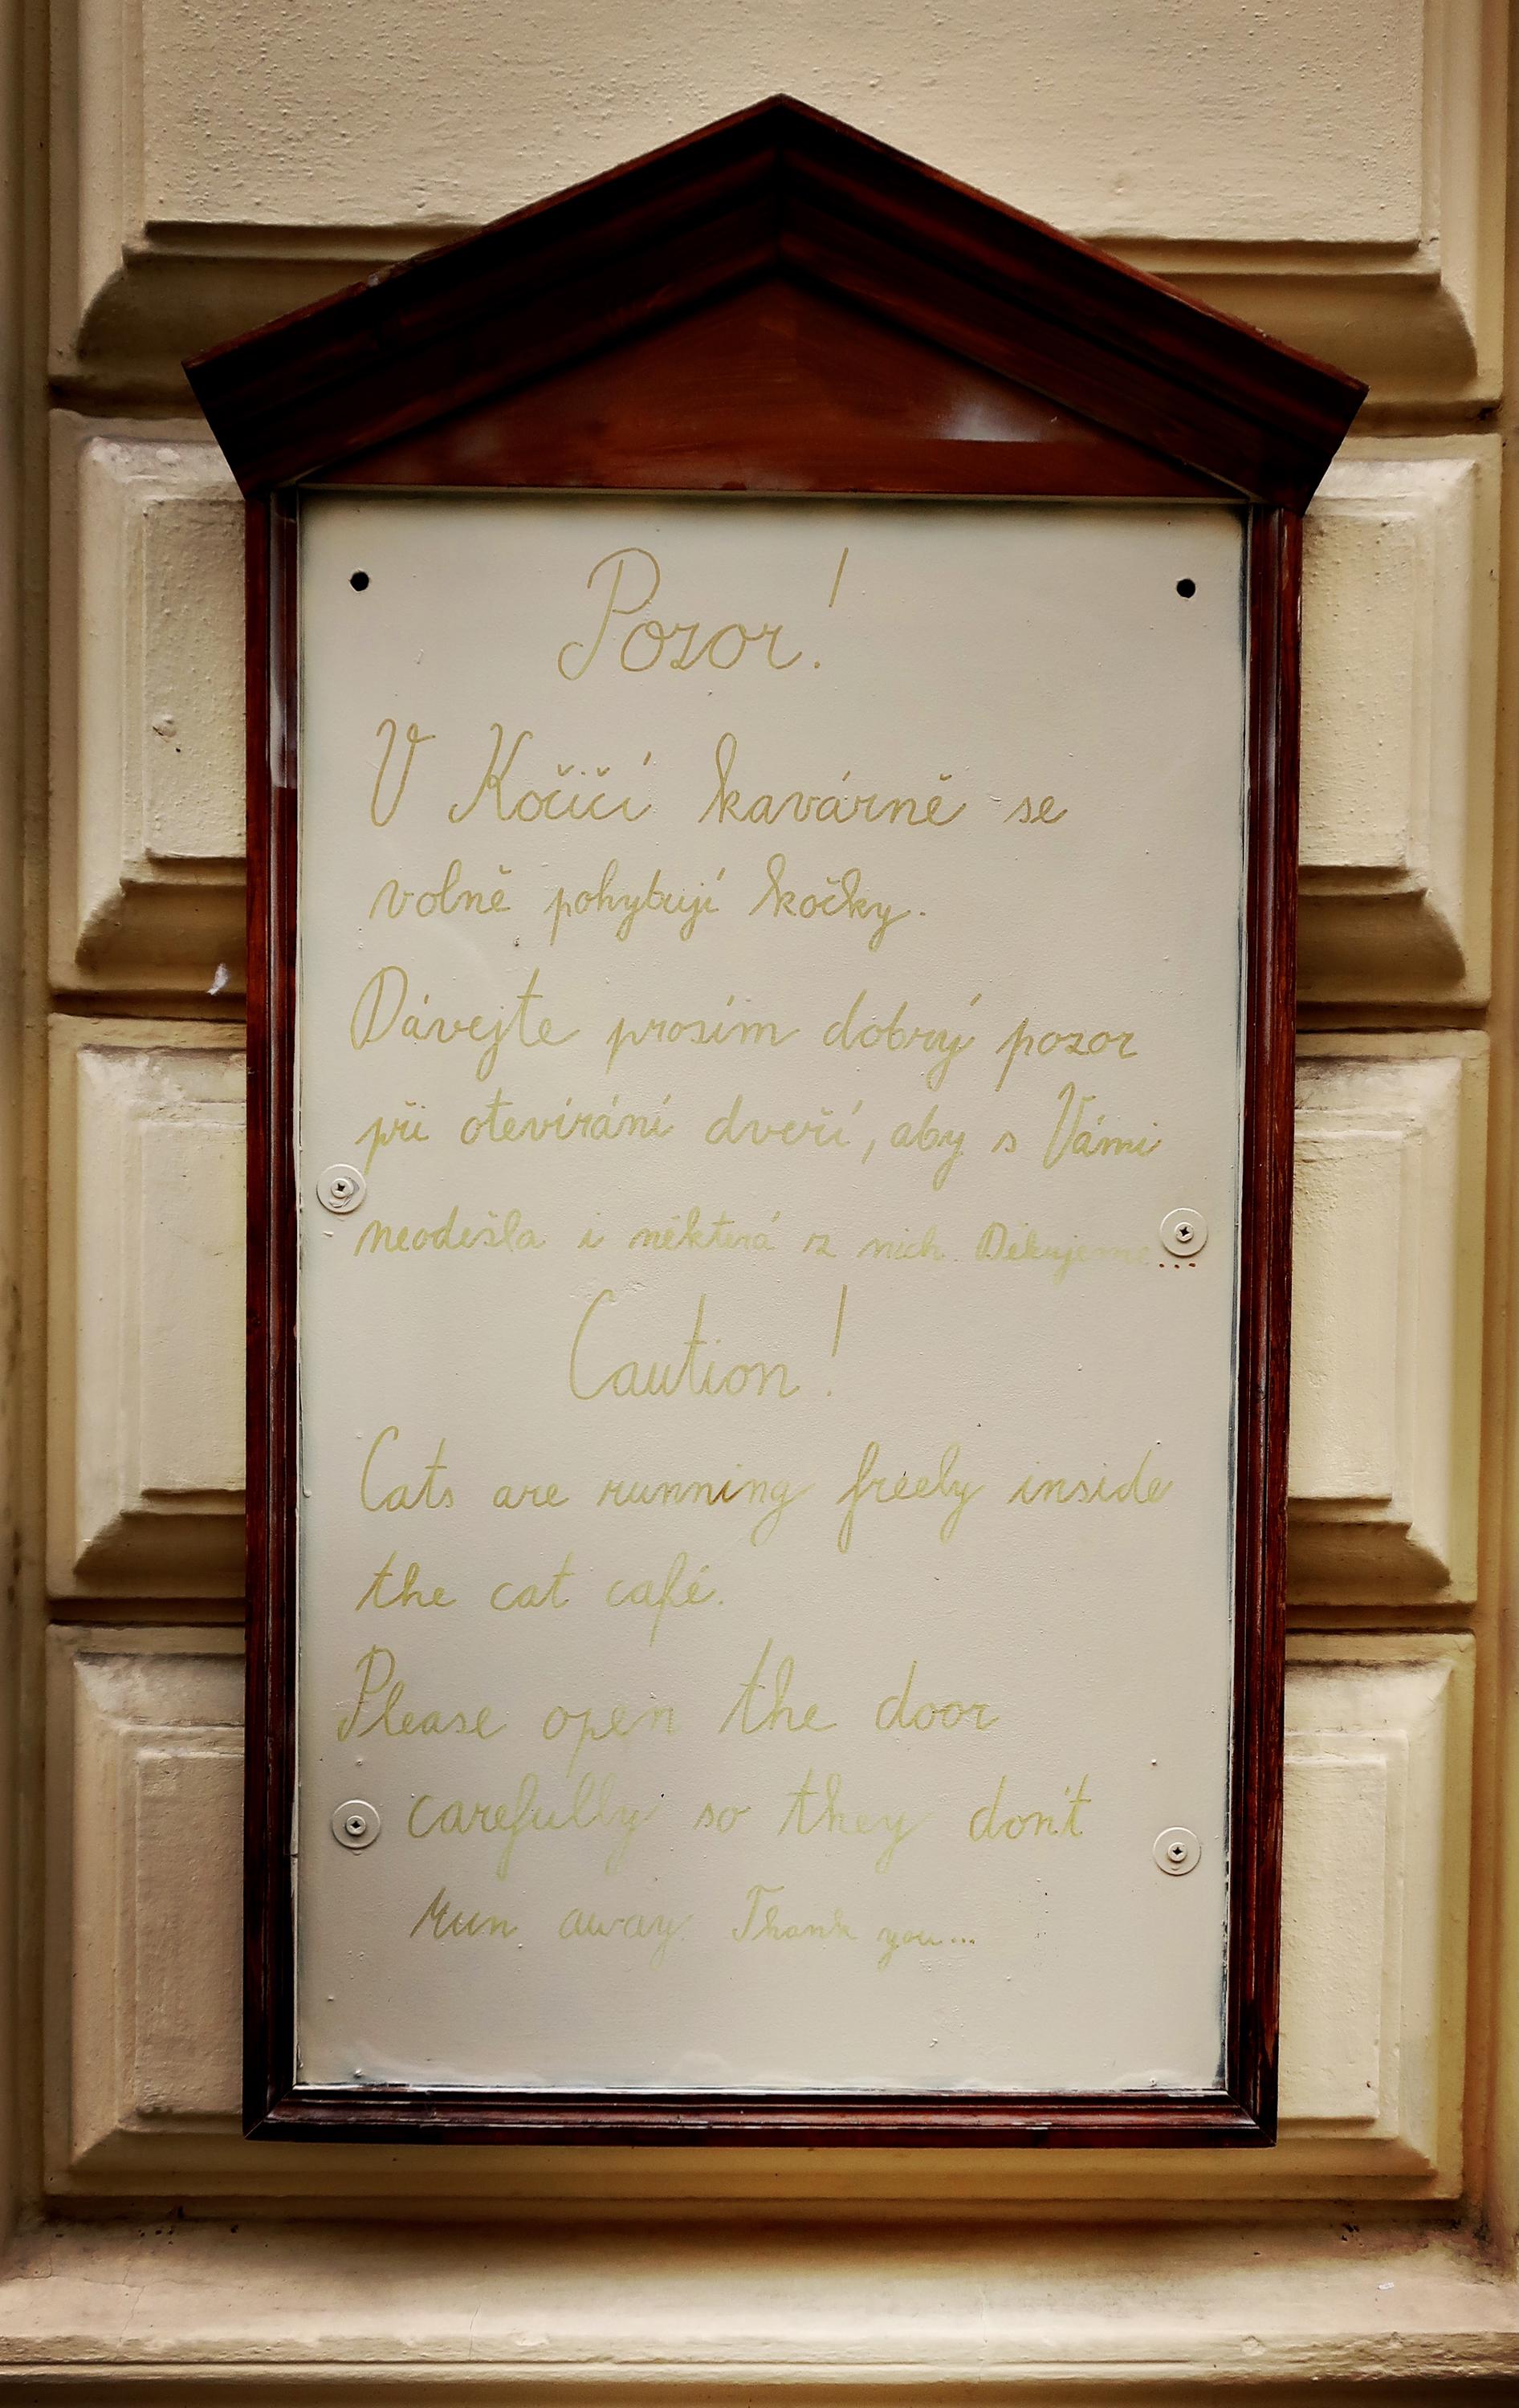 Pozor!
V Kočičí kavárně se
volně pohybují kočky.
Dávejte prosím dobrý pozor
při otevírání dveří, aby s Vámi
neodešla i některá z nich. Děkujeme...
Caution!
Cats are running freely inside
the cat café.
Please open the door
carefully so they don't
run away. Thank you...